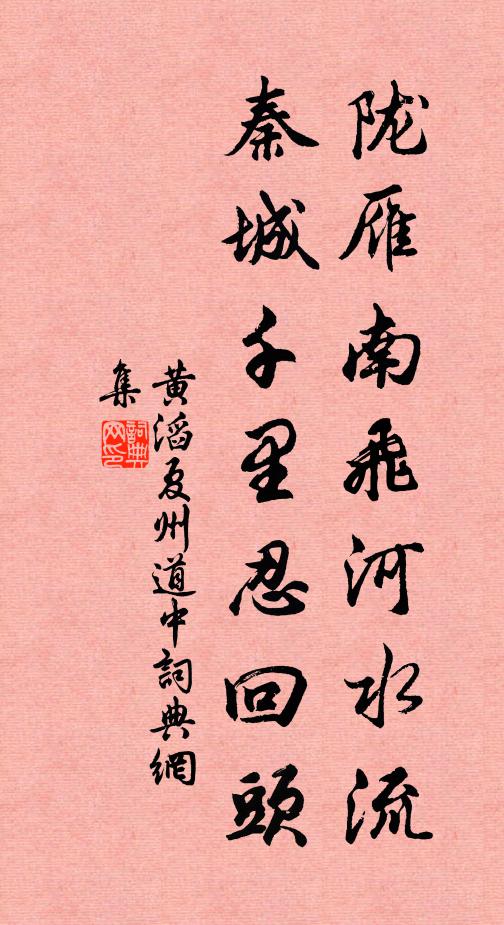 陇雁南飛河水流
秦城千里忍回頭
黄滔夏州道中詞典網
集
詞典
网印